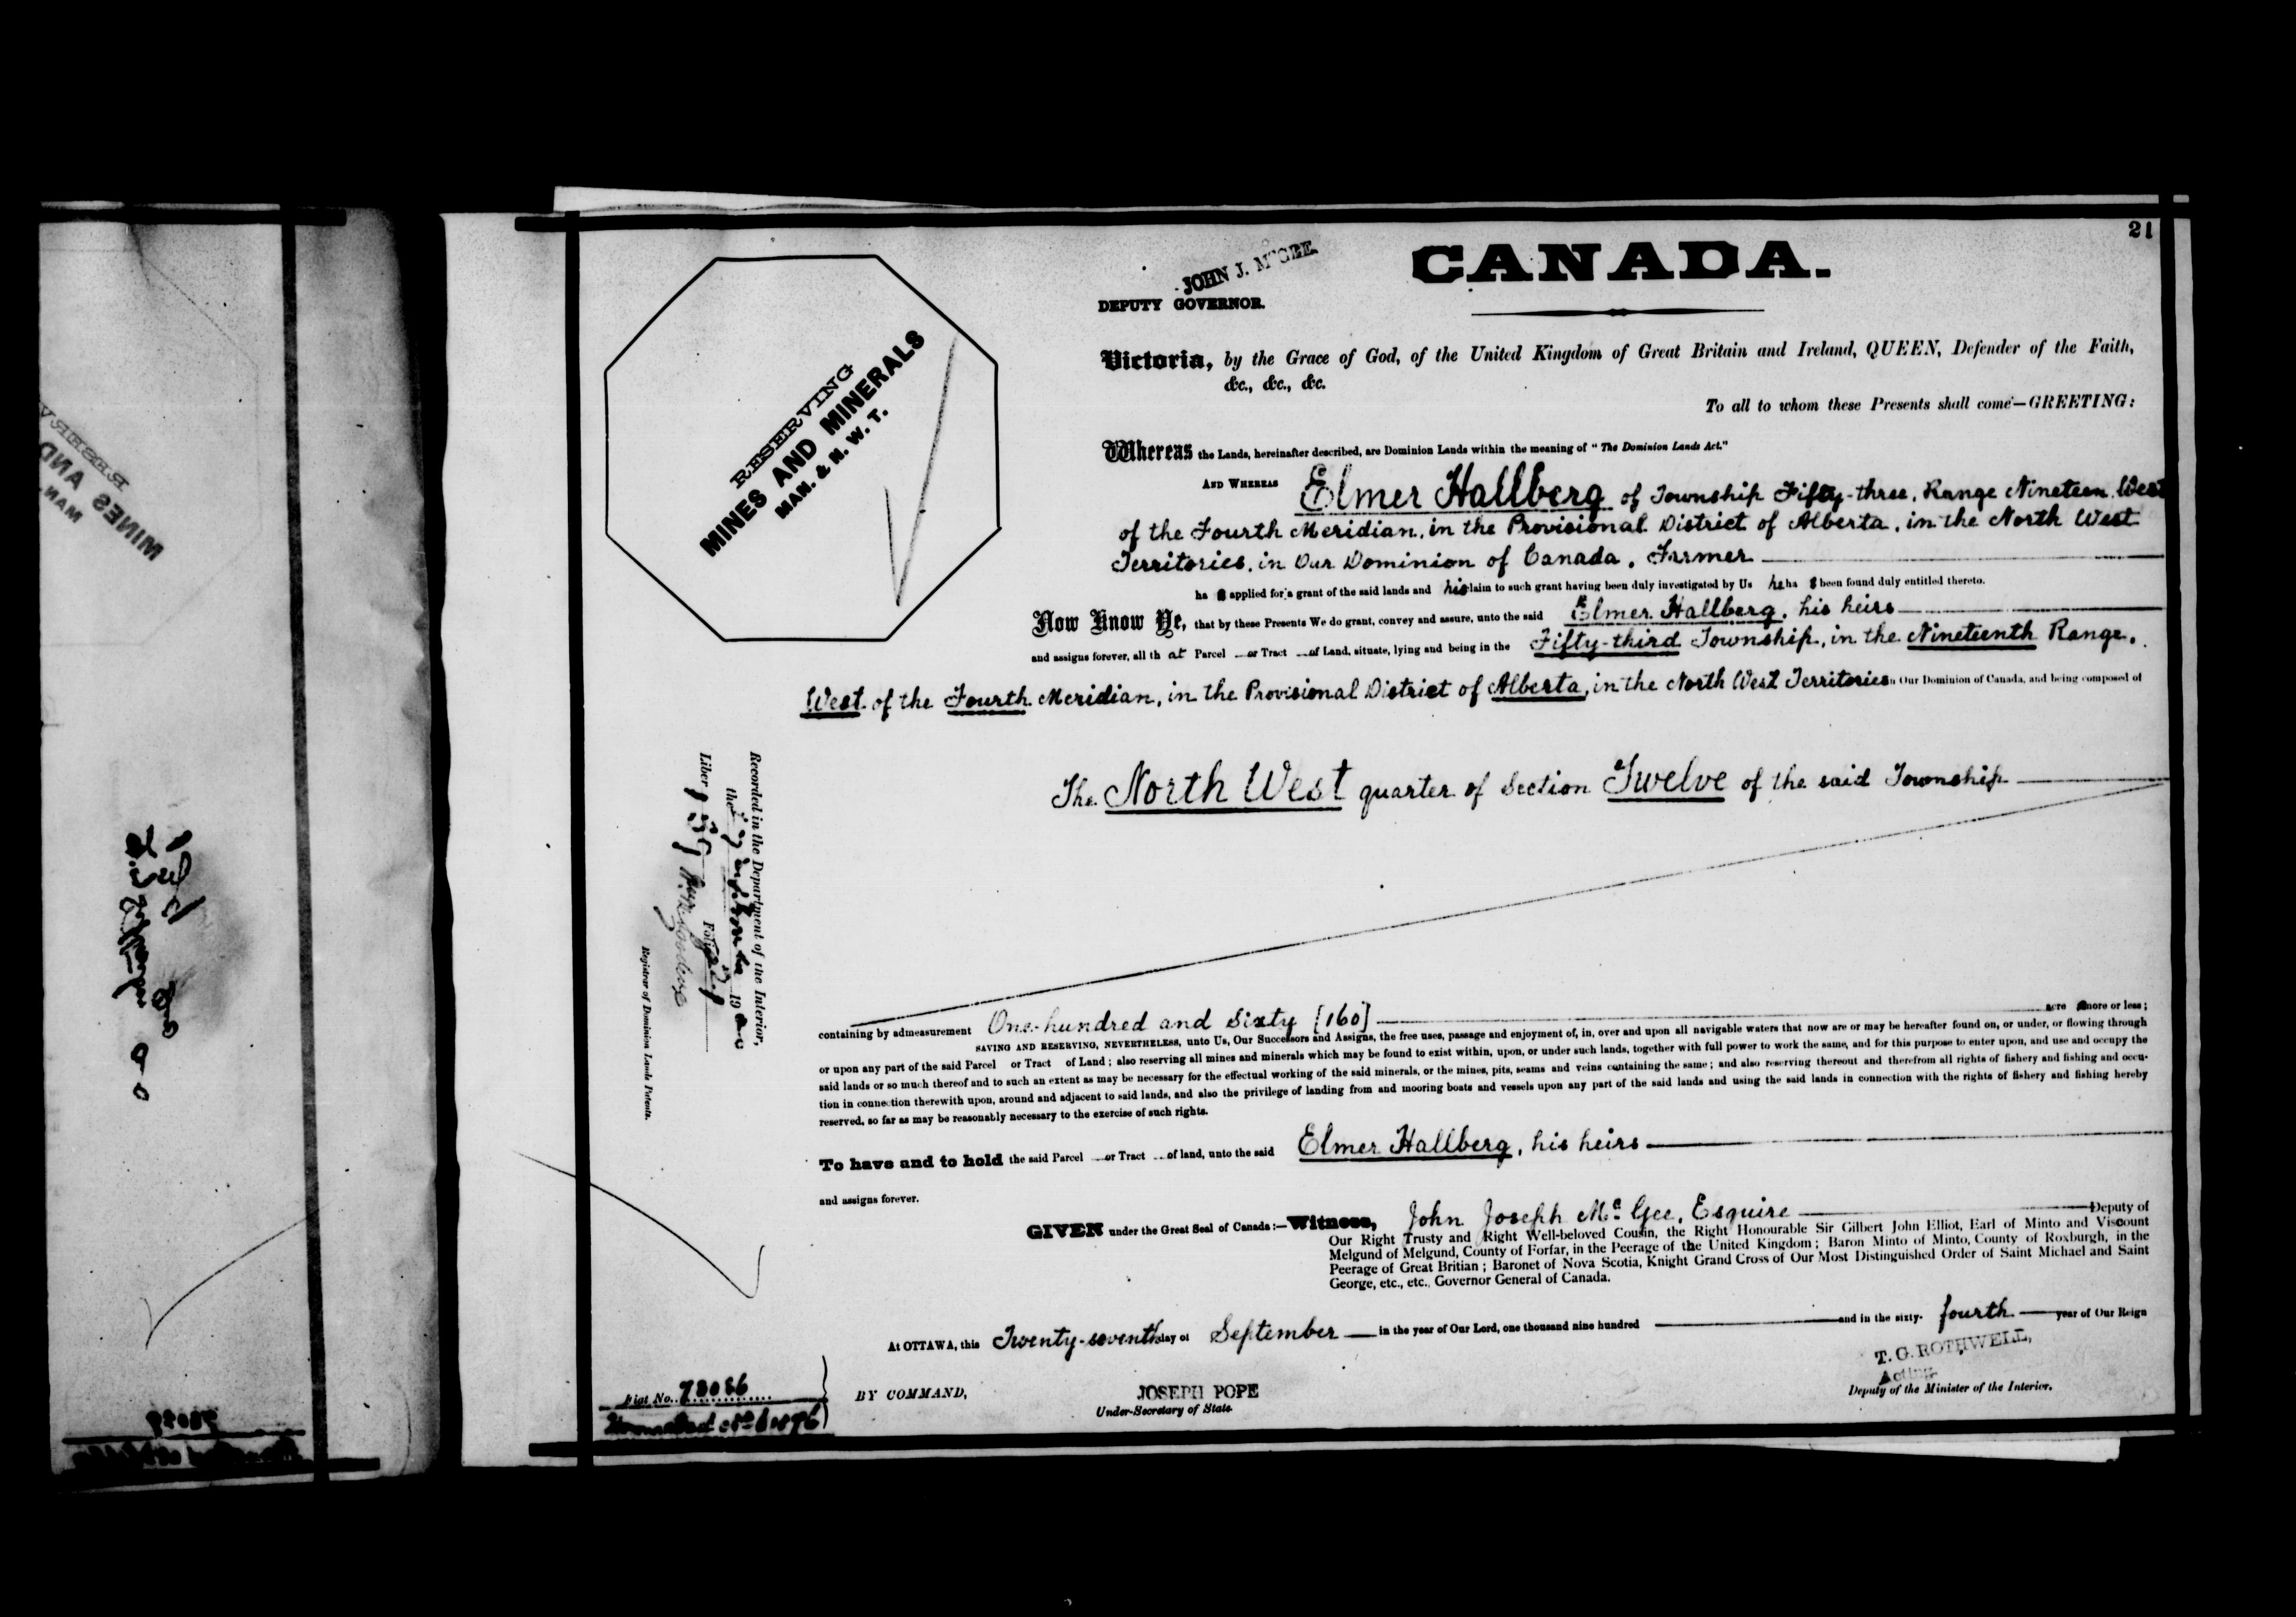 21
CANADA.
JOHN J. McGEE.
DEPUTY GOVERNOR.
RESERVING
MINES AND MINERALS
MAN. & N. W. T.
Victoria, by the Grace of God, of the United Kingdom of Great Britain and Ireland, QUEEN, Defender of the Faith,
&c., &c., &c.
To all to whom these Presents shall come—GREETING:
Whereas the Lands, hereinafter described, are Dominion Lands within the meaning of "The Dominion Lands Act."
AND WHEREAS Elmer Hallberg of Township Fifty-three, Range Nineteen West
of the Fourth Meridian, in the Provisional District of Alberta, in the North West
Territories, in Our Dominion of Canada, Farmer
ha s applied for a grant of the said lands and his claim to such grant having been duly investigated by Us he ha s been found duly entitled thereto.
Now Know Ye, that by these Presents We do grant, convey and assure, unto the said Elmer Hallberg, his heirs
and assigns forever, all th at Parcel or Tract of Land, situate, lying and being in the Fifty-third Township, in the Nineteenth Range,
West of the Fourth Meridian, in the Provisional District of Alberta, in the North West Territories Our Dominion of Canada, and being composed of
The North West quarter of Section Twelve of the said Township
Recorded in the Department of the Interior,
the 19
Liber Folio
Registrar of Dominion Lands Patents.
containing by admeasurement One hundred and sixty [160] acre more or less;
SAVING AND RESERVING, NEVERTHELESS, unto Us, Our Successors and Assigns, the free uses, passage and enjoyment of, in, over and upon all navigable waters that now are or may be hereafter found on, or under, or flowing through
or upon any part of the said Parcel or Tract of Land; also reserving all mines and minerals which may be found to exist within, upon, or under such lands, together with full power to work the same, and for this purpose to enter upon, and use and occupy the
said lands or so much thereof and to such an extent as may be necessary for the effectual working of the said minerals, or the mines, pits, seams and veins containing the same; and also reserving thereout and therefrom all rights of fishery and fishing and occu-
tion in connection therewith upon, around and adjacent to said lands, and also the privilege of landing from and mooring boats and vessels upon any part of the said lands and using the said lands in connection with the rights of fishery and fishing hereby
reserved, so far as may be reasonably necessary to the exercise of such rights.
To have and to hold the said Parcel or Tract of land, unto the said Elmer Hallberg, his heirs
and assigns forever.
GIVEN under the Great Seal of Canada:—Witness, John Joseph McGee, Esquire Deputy of
Our Right Trusty and Right Well-beloved Cousin, the Right Honourable Sir Gilbert John Elliot, Earl of Minto and Viscount
Melgund of Melgund, County of Forfar, in the Peerage of the United Kingdom; Baron Minto of Minto, County of Roxburgh, in the
Peerage of Great Britian; Baronet of Nova Scotia, Knight Grand Cross of Our Most Distinguished Order of Saint Michael and Saint
George, etc., etc., Governor General of Canada.
At OTTAWA, this Twenty-seventh day of September in the year of Our Lord, one thousand nine hundred and in the sixty-fourth year of Our Reign
T. G. ROTHWELL,
Acting
Deputy of the Minister of the Interior.
BY COMMAND,
JOSEPH POPE
Under-Secretary of State.
Fiat No. 78086